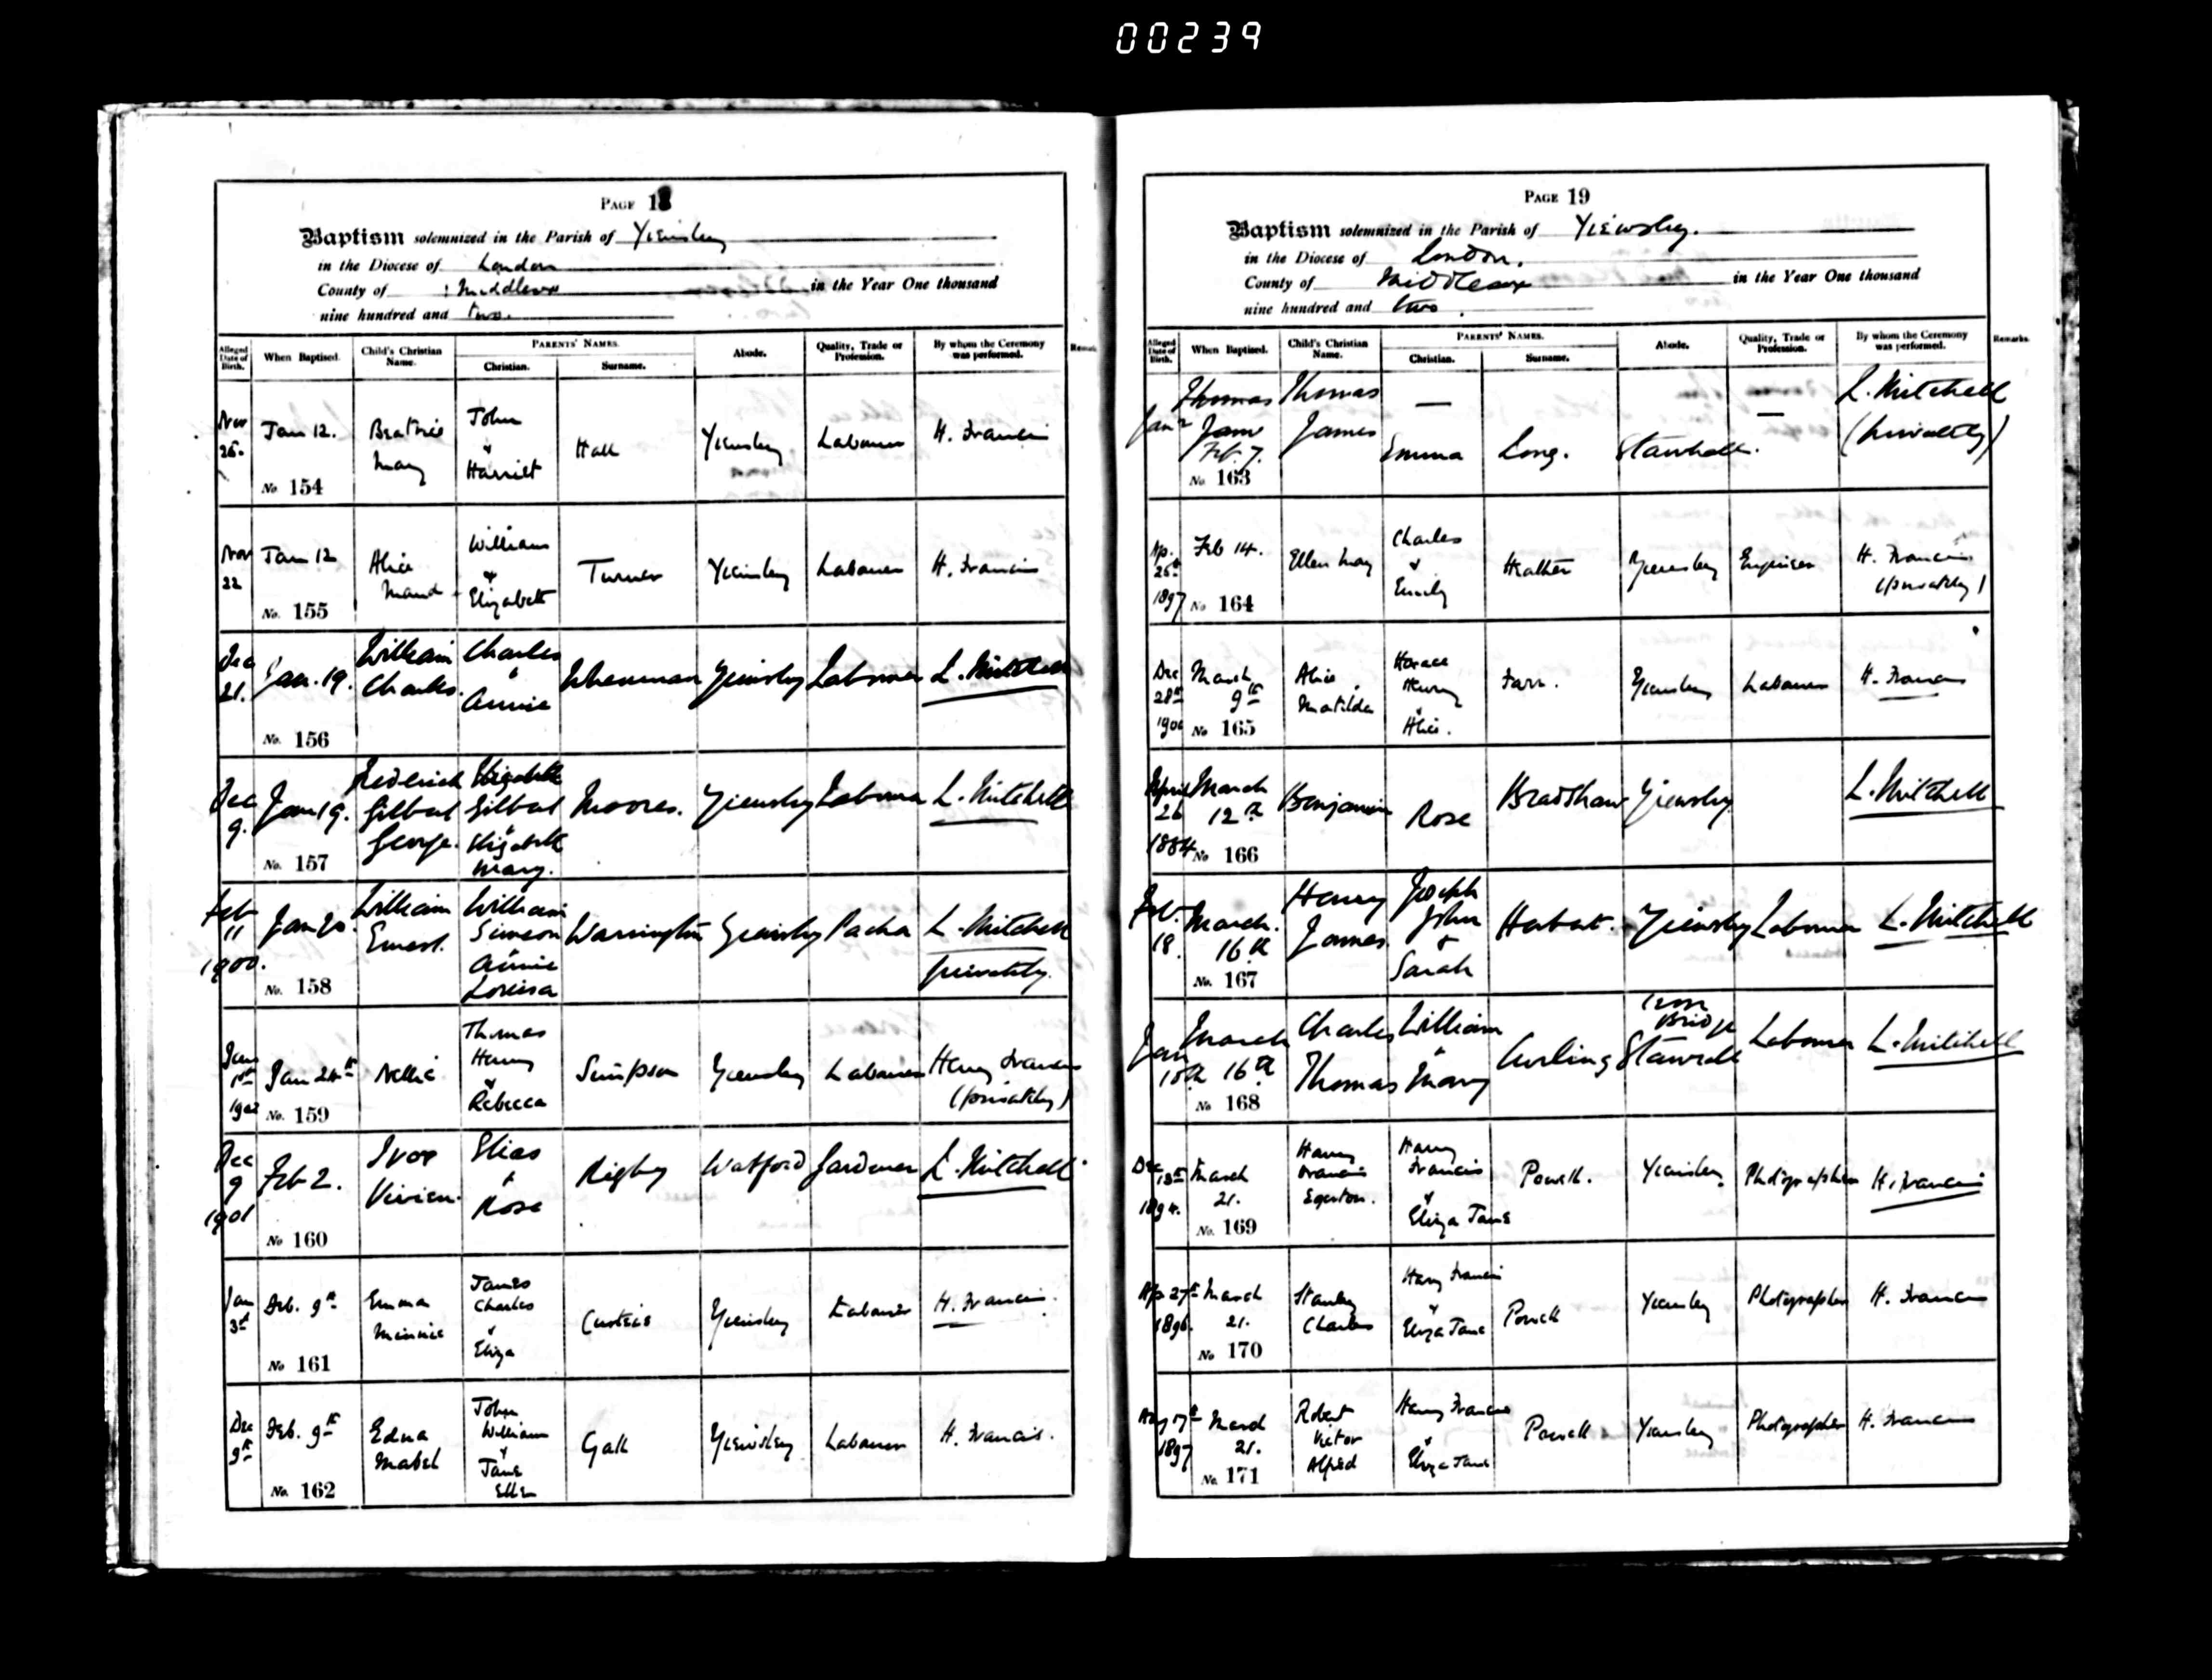 00239
PAGE 18
Baptism solemnized in the Parish of Yiewsley
in the Diocese of London
County of Middlesex in the Year One thousand
nine hundred and two.
Alleged Date of Birth. When Baptised. Child's Christian Name. PARENTS' NAMES. Christian. Surname. Abode. Quality, Trade or Profession. By whom the Ceremony was performed. Remarks
Nov 26. Jan 12. No. 154 Beatrice Mary John & Harriet Hall Yiewsley Labourer H. Francis
Nov 22 Jan 12 No. 155 Alice Maud William & Elizabeth Turner Yiewsley Labourer H. Francis
Dec 21. Jan. 19. No. 156 William Charles. Charles & Annie Yiewsley Labourer L. Mitchell
Dec 9. Jan 19. No. 157 Frederick Gilbert George. Elizabeth Gilbert & Elizabeth Mary. Moores. Yiewsley Labourer L. Mitchell
Feb 11 1900. Jan 20. No. 158 William Ernest. William Simeon & Annie Louisa Warrington Yiewsley Packer L. Mitchell privately.
Jan 1st 1902 Jan 24th No. 159 Nellie Thomas Henry & Rebecca Simpson Yiewsley Labourer Henry Francis (privately)
Dec 9 1901 Feb 2. No 160 Ivor Vivien. Elias & Rose Rigby Watford Gardener L. Mitchell
Jan 3rd Feb. 9th No 161 Emma Minnie James Charles & Eliza Curtis Yiewsley Labourer H. Francis.
Dec 9th Feb. 9th No. 162 Edna Mabel John William & Jane Ellen Gall Yiewsley Labourer H. Francis.
PAGE 19
Baptism solemnized in the Parish of Yiewsley.
in the Diocese of London.
County of Middlesex in the Year One thousand
nine hundred and two.
Alleged Date of Birth. When Baptised. Child's Christian Name. PARENTS' NAMES. Christian. Surname. Abode. Quality, Trade or Profession. By whom the Ceremony was performed. Remarks.
Jan 2 Thomas Jame Feb. 7. No. 163 Thomas James — Emma Long. Starwell. — L. Mitchell (privately)
Ap. 26th 1897 Feb 14. No 164 Ellen May Charles & Emily Heather Yiewsley Engineer H. Francis (privately)
Dec 28th 1900 March 9th No 165 Alice Matilda Horace Henry & Alice. Farr. Yiewsley Labourer H. Francis
April 26 1884 March 12th No 166 Benjamin Rose Bradshaw Yiewsley L. Mitchell
Feb. 18. March. 16th No. 167 Henry James Joseph John & Sarah Yiewsley Labourer L. Mitchell
Jan 15th March 16th No 168 Charles Thomas William & Mary Curling Iron Bridge Labourer L. Mitchell
Dec 13th 1894. March 21. No. 169 Harry Francis Egerton. Harry Francis & Eliza Jane Powell. Yiewsley. Photographer H. Francis
Ap 27th 1896. March 21. No 170 Stanley Charles Harry Francis & Eliza Jane Powell Yiewsley Photographer H. Francis
Aug 17th 1897 March 21. No. 171 Robert Victor Alfred Harry Francis & Eliza Jane Powell Yiewsley Photographer H. Francis